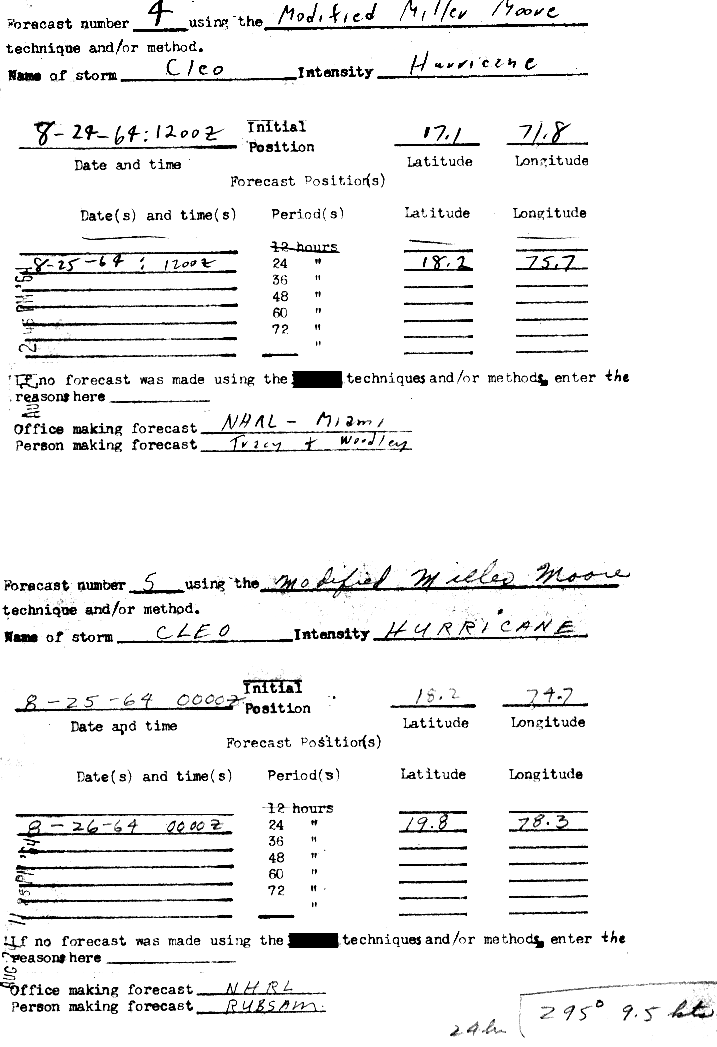 Forecast number 4 using the Modified Miller Moore
technique and/or method.
Name of storm Cleo Intensity Hurricane
8-24-64:1200Z Initial Position 17.1 71.8
Date and time Latitude Longitude
Forecast Position(s)
Date(s) and time(s) Period(s) Latitude Longitude
12 hours
8-25-64 : 1200Z 24 " 18.2 75.7
36 "
48 "
60 "
72 "
"
If no forecast was made using the techniques and/or methods, enter the
reasons here
Office making forecast NHRL - Miami
Person making forecast Tracy + Woodley
Forecast number 5 using the Modified Miller Moore
technique and/or method.
Name of storm CLEO Intensity HURRICANE
8-25-64 0000Z Initial Position 18.2 74.7
Date and time Latitude Longitude
Forecast Position(s)
Date(s) and time(s) Period(s) Latitude Longitude
12 hours
8-26-64 0000Z 24 " 19.8 78.3
36 "
48 "
60 "
72 "
"
If no forecast was made using the techniques and/or methods, enter the
reasons here
Office making forecast NHRL
Person making forecast RUBSAM.
24hr 295° 9.5 kts